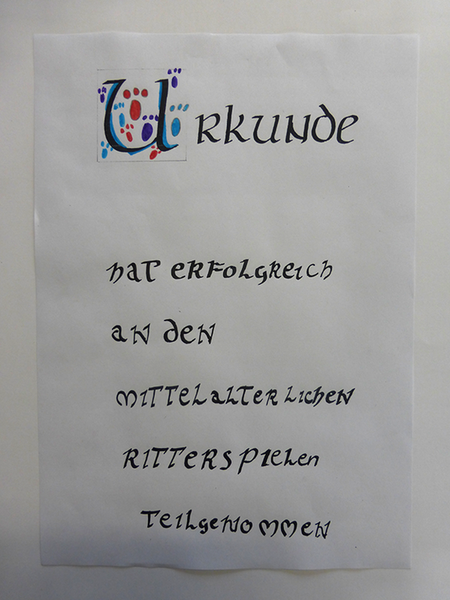 Urkunde
hat erfolgreich
an den
mittelalterlichen
Ritterspielen
teilgenommen